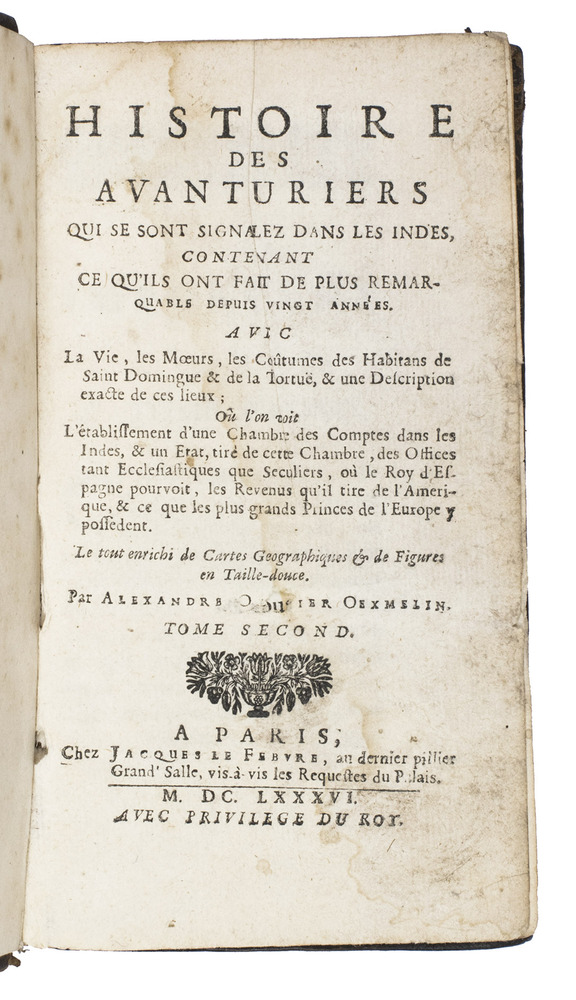 HISTOIRE
DES
AVANTURIERS
QUI SE SONT SIGNALEZ DANS LES INDES,
CONTENANT
CE QU'ILS ONT FAIT DE PLUS REMAR-
QUABLE DEPUIS VINGT ANNÉES.
AVEC
La Vie, les Mœurs, les Coûtumes des Habitans de
Saint Domingue & de la Tortuë, & une Deſcription
exacte de ces lieux ;
Où l'on voit
L'établiſſement d'une Chambre des Comptes dans les
Indes, & un Etat, tiré de cette Chambre, des Offices
tant Eccleſiaſtiques que Seculiers, où le Roy d'Eſ-
pagne pourvoit, les Revenus qu'il tire de l'Ameri-
que, & ce que les plus grands Princes de l'Europe y
poſſedent.
Le tout enrichi de Cartes Geographiques & de Figures
en Taille-douce.
Par ALEXANDRE OLIVIER OEXMELIN.
TOME SECOND.
A PARIS,
Chez JACQUES LE FEBVRE, au dernier pillier
Grand' Salle, vis-à-vis les Requeſtes du Palais.
M. DC. LXXXVI.
AVEC PRIVILEGE DU ROY.